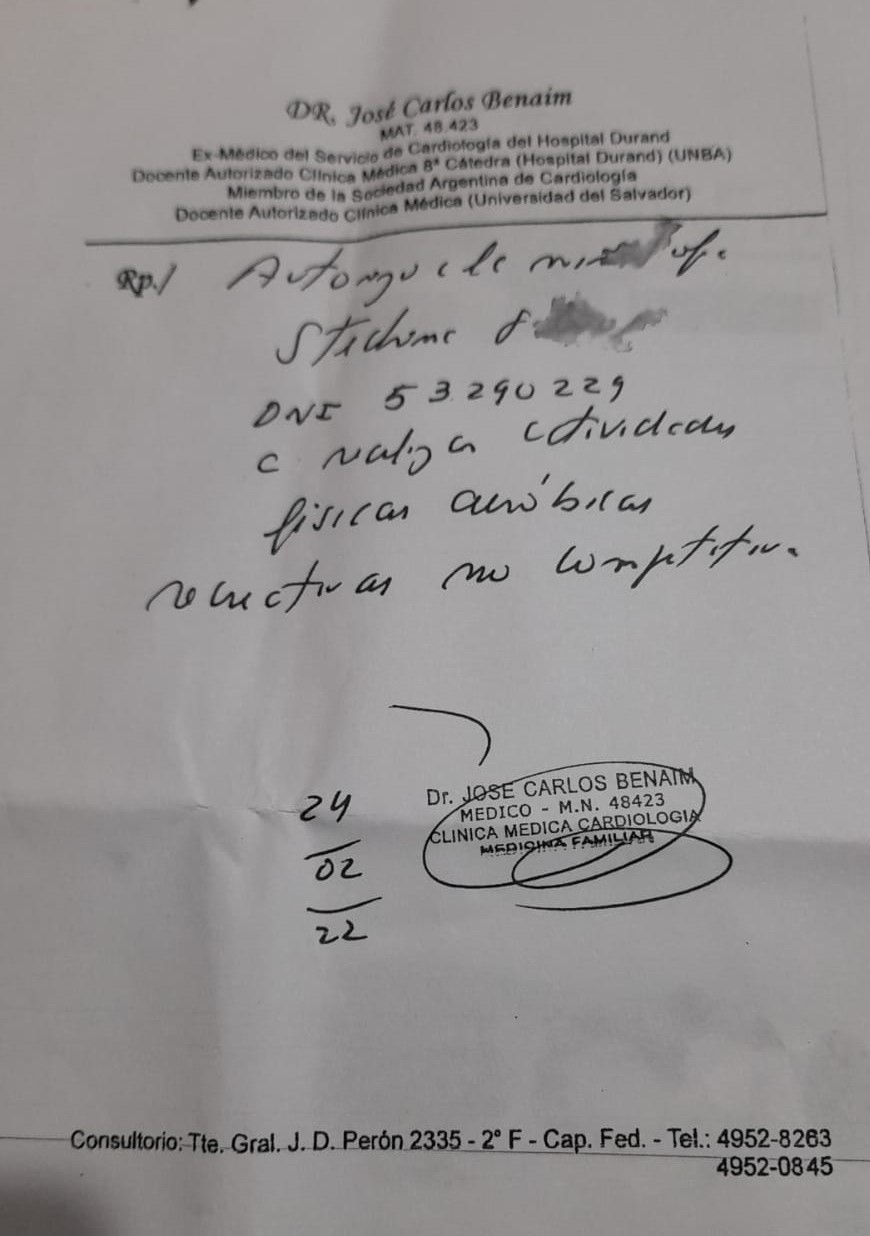 DR. José Carlos Benaim
MAT. 48.423
Ex-Médico del Servicio de Cardiología del Hospital Durand
Docente Autorizado Clínica Médica 8ª Cátedra (Hospital Durand) (UNBA)
Miembro de la Sociedad Argentina de Cardiología
Docente Autorizado Clínica Médica (Universidad del Salvador)
Rp./ Autorizo a la
DNI 53290229
a realizar actividades
físicas aeróbicas
recreativas no competitivas
24
02
22
Dr. JOSE CARLOS BENAIM
MEDICO - M.N. 48423
CLINICA MEDICA CARDIOLOGIA
MEDICINA FAMILIAR
Consultorio: Tte. Gral. J. D. Perón 2335 - 2° F - Cap. Fed. - Tel.: 4952-8263
4952-0845